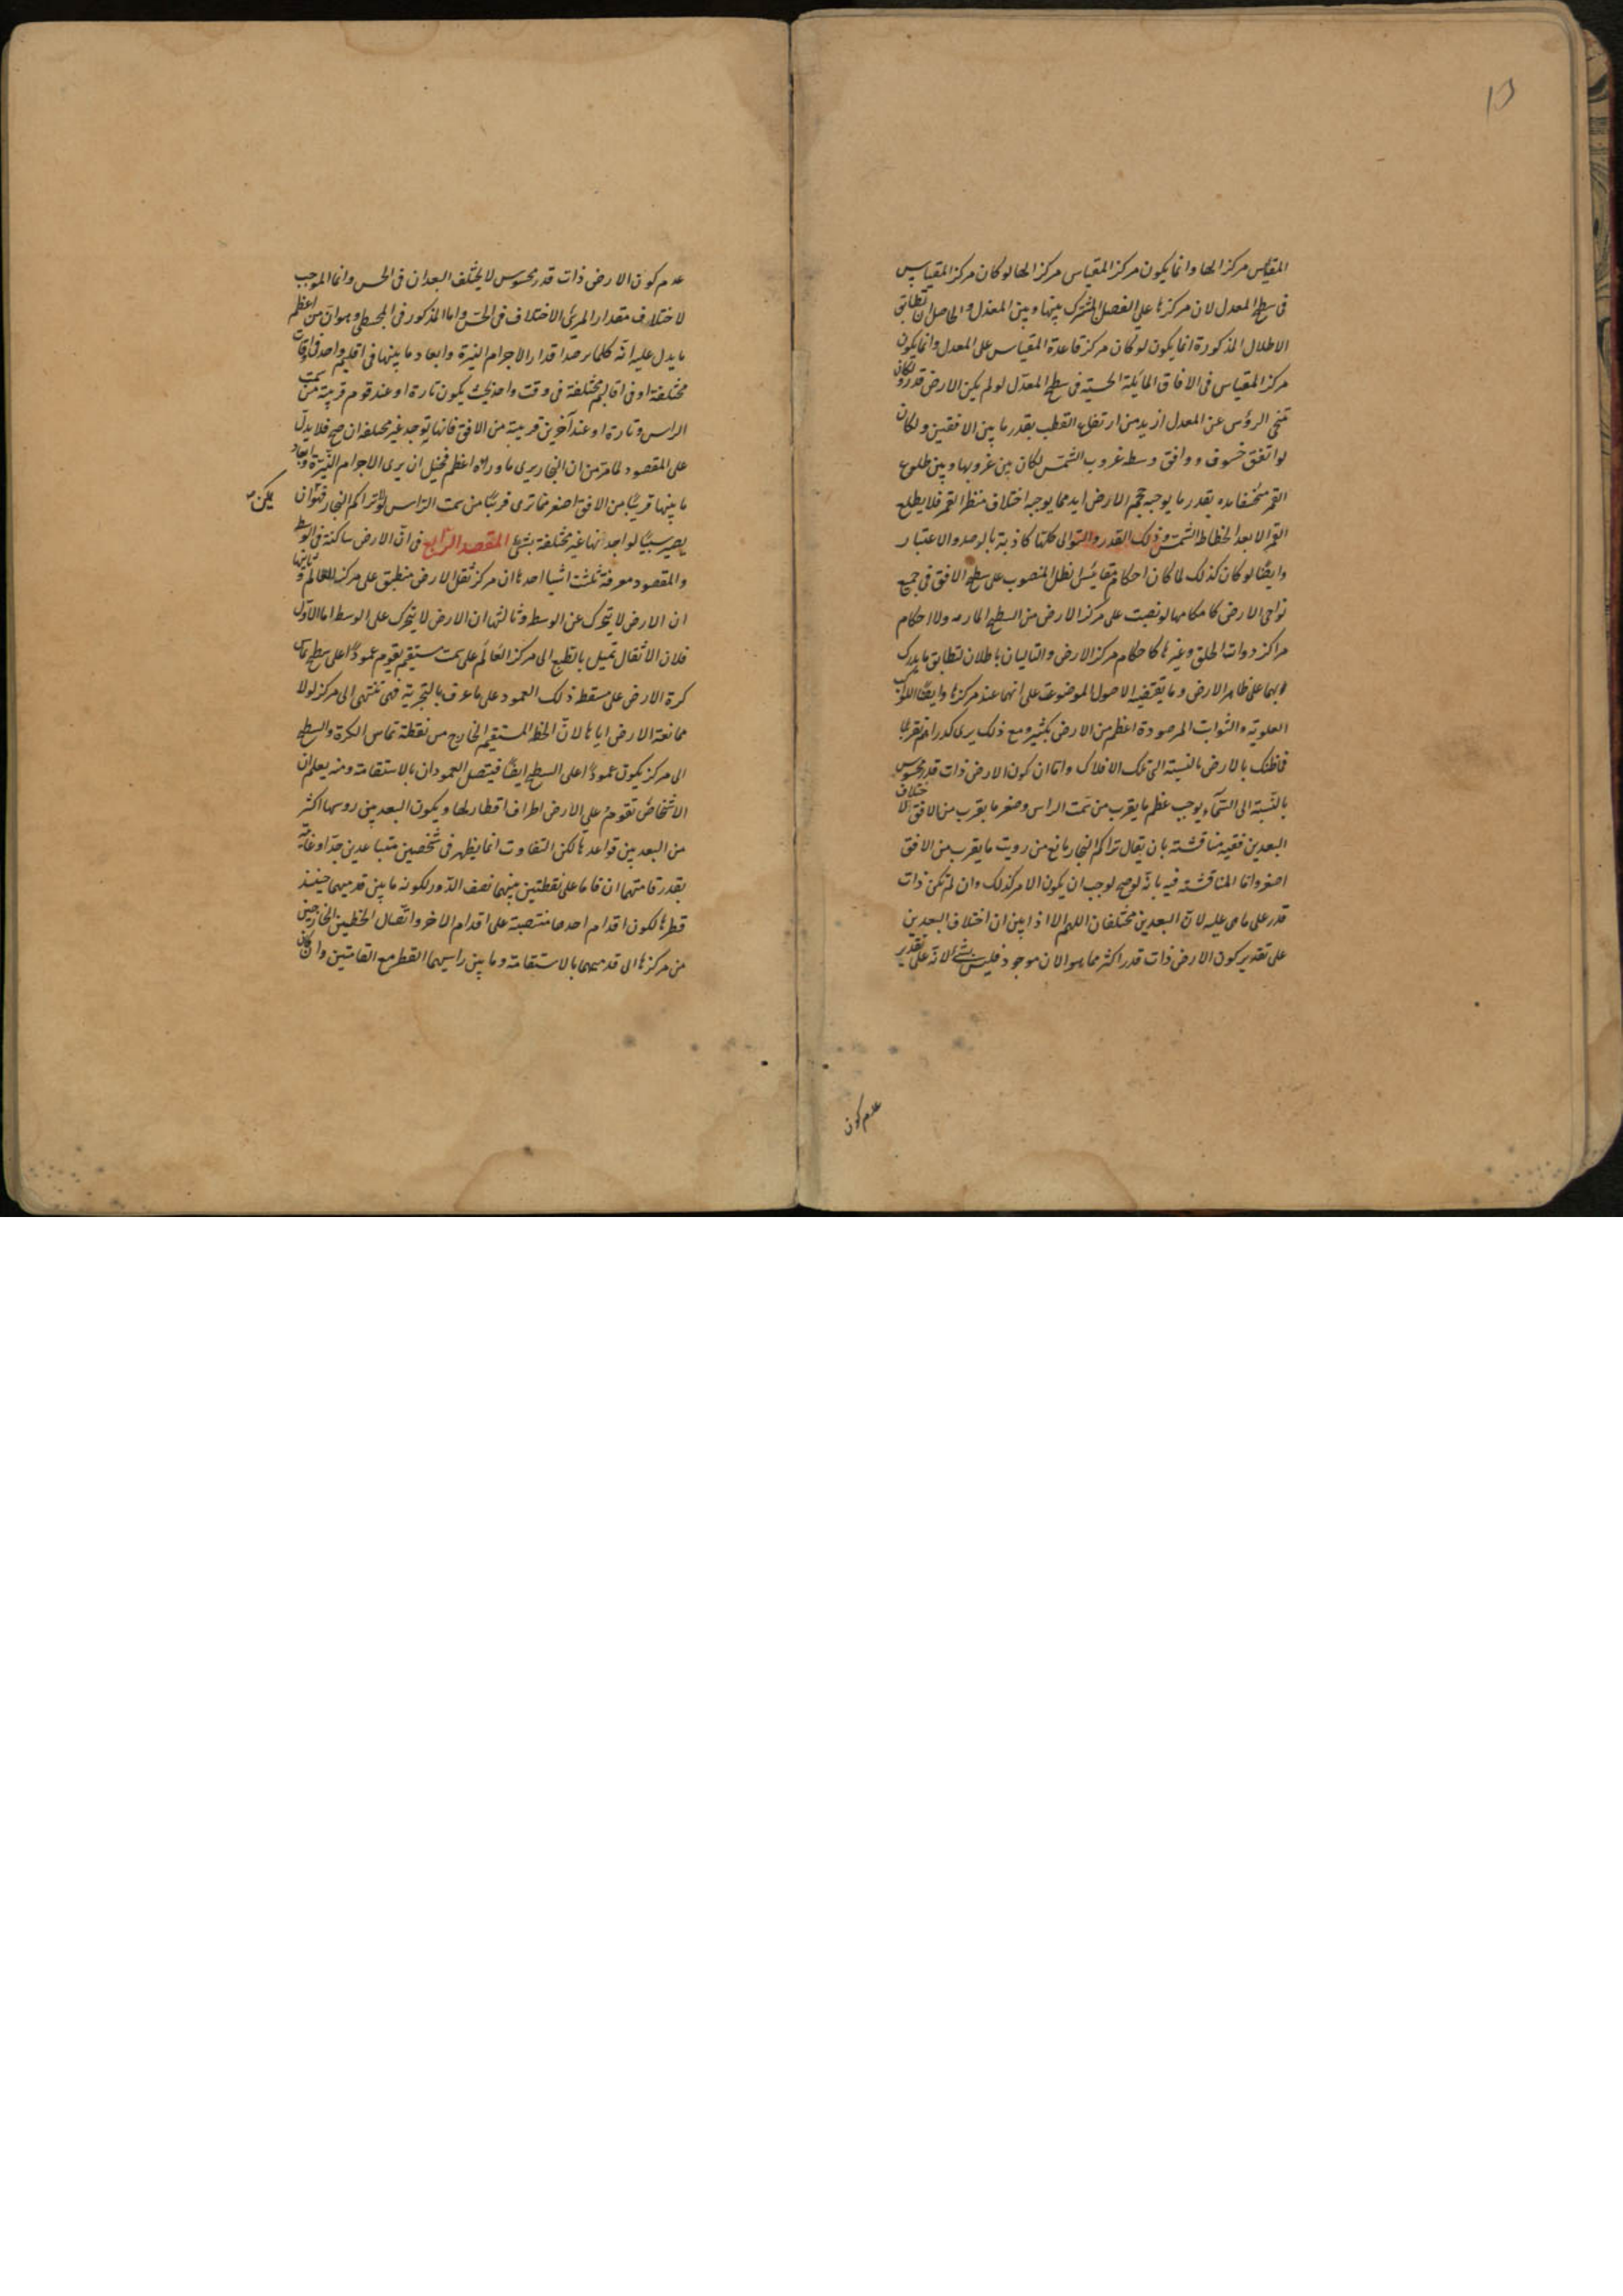 المقياس مركز الها وانما يكون مركز المقياس مركز الها لو كان مركز المقياس
فى سطح المعدل لان مركزها على الفصل المشترك بينها وبين المعدل والحاصل ان تطابق
الاظلال المذكورة انما يكون لو كان مركز قاعدة المقياس على المعدل وانما يكون
مركز المقياس فى الافاق المائلة الحسية فى سطح المعدل لو لم يكن الارض قدر ولكان
تنحى الرؤس عن المعدل ازيد من ارتفاع القطب بقدر ما بين الافقين ولكان
لو اتفق خسوف ووافق وسط غروب الشمس لكان بين غروبها وبين طلوع
القمر منخسفا مده بقدر ما يوجبه حجم الارض ازيد مما يوجبه اختلاف منظر القمر فلا يطلع
القمر الا بعد انحطاط الشمس وذلك القدر والتوالى كلها كاذبة بالرصد والاعتبار
وايضا لو كان كذلك لما كان احكام مقائيس اظلل المنصوب على سطح الافق فى جميع
نواحى الارض كاحكامها لو نصبت على مركز الارض من السطح المار به ولا احكام
مراكز ذوات الحلق وغيرها كاحكام مركز الارض والتاليان باطلان لتطابق ما يدرك
بهما على ظاهر الارض وما يقتضيه الاصول الموضوعة على انهما عند مركزها وايضا الكواكب
العلوية والثوابت المرصودة اعظم من الارض بكثير ومع ذلك يرى كدراهم تقريبا
فما ظنك بالارض بالنسبة الى تلك الافلاك واما ان كون الارض ذات قدر محسوس
بالنسبة الى السماء يوجب عظم ما يقرب من سمت الراس وصغر ما يقرب من الافق لاختلاف
البعدين ففيه مناقشة بان يقال تراكم البخار مانع من رويت ما يقرب من الافق
اصغر واما المناقشة فيه بانه لو صح لوجب ان يكون الامر كذلك وان لم يكن ذات
قدر على ما هى عليه لان البعدين مختلفان اللهم الا اذا بين ان اختلاف البعدين
على تقدير كون الارض ذات قدر اكثر مما هو الان موجود فليس بشئ لانه على تقدير
عدم كون
عدم كون الارض ذات قدر محسوس لا يختلف البعدان فى الحس وانما الموجب
لاختلاف مقدار المرئى الاختلاف فى الحس واما المذكور فى المجسطى وهو ان من اعظم
ما يدل عليه انه كلما يرصد اقدار الاجرام النيرة وابعاد ما بينها فى اقليم واحد فى اوقات
مختلفة او فى اقاليم مختلفة فى وقت واحد بحيث يكون تارة او عند قوم قريبة من سمت
الراس وتارة او عند آخرين قريبة من الافق فانها توجد غير مختلفه ان صح فلا يدل
على المقصود لما مر من ان البخار يرى ما وراه اعظم فيخيل ان يرى الاجرام النيرة وابعاد
ما بينها قريبا من الافق اصغر مما ترى قريبا من سمت الراس لولا تراكم البخار فهو ان
يمكن
يصير سببا لو اجد انها غير مختلفة بشئ المقصد الرابع فى ان الارض ساكنة فى الوسط
والمقصود معرفة ثلثة اشيا احدها ان مركز ثقل الارض منطبق على مركز العالم وثانيها
ان الارض لا يتحرك عن الوسط وثالثها ان الارض لا يتحرك على الوسط اما الاول
فلان الاثقال تميل بالطبع الى مركز العالم على سمت مستقيم يقوم عمودا على سطح تماس
كرة الارض على مسقط ذلك العمود على ما عرف بالتجربة فهى تنتهى الى مركز لولا
ممانعة الارض اياها لان الخط المستقيم الخارج من نقطة تماس الكرة والسطح
الى مركز يكون عمودا على السطح ايضا فيتصل العمودان بالاستقامة ومنه يعلم ان
الاشخاص تقوم على الارض اطراف اقطار لها ويكون البعد بين روسها اكثر
من البعد بين قواعدها لكن التفاوت انما يظهر فى شخصين متباعدين جدا وغايته
بقدر قامتهما ان قاما على نقطتين بينهما نصف الدور لكونه ما بين قدميهما حينئذ
قطرها لكون اقدام احدهما منتصبة على اقدام الاخر واتصال الخطين الخارجين
من مركزها الى قدميهما بالاستقامة وما بين راسيهما القطر مع القامتين وان كان